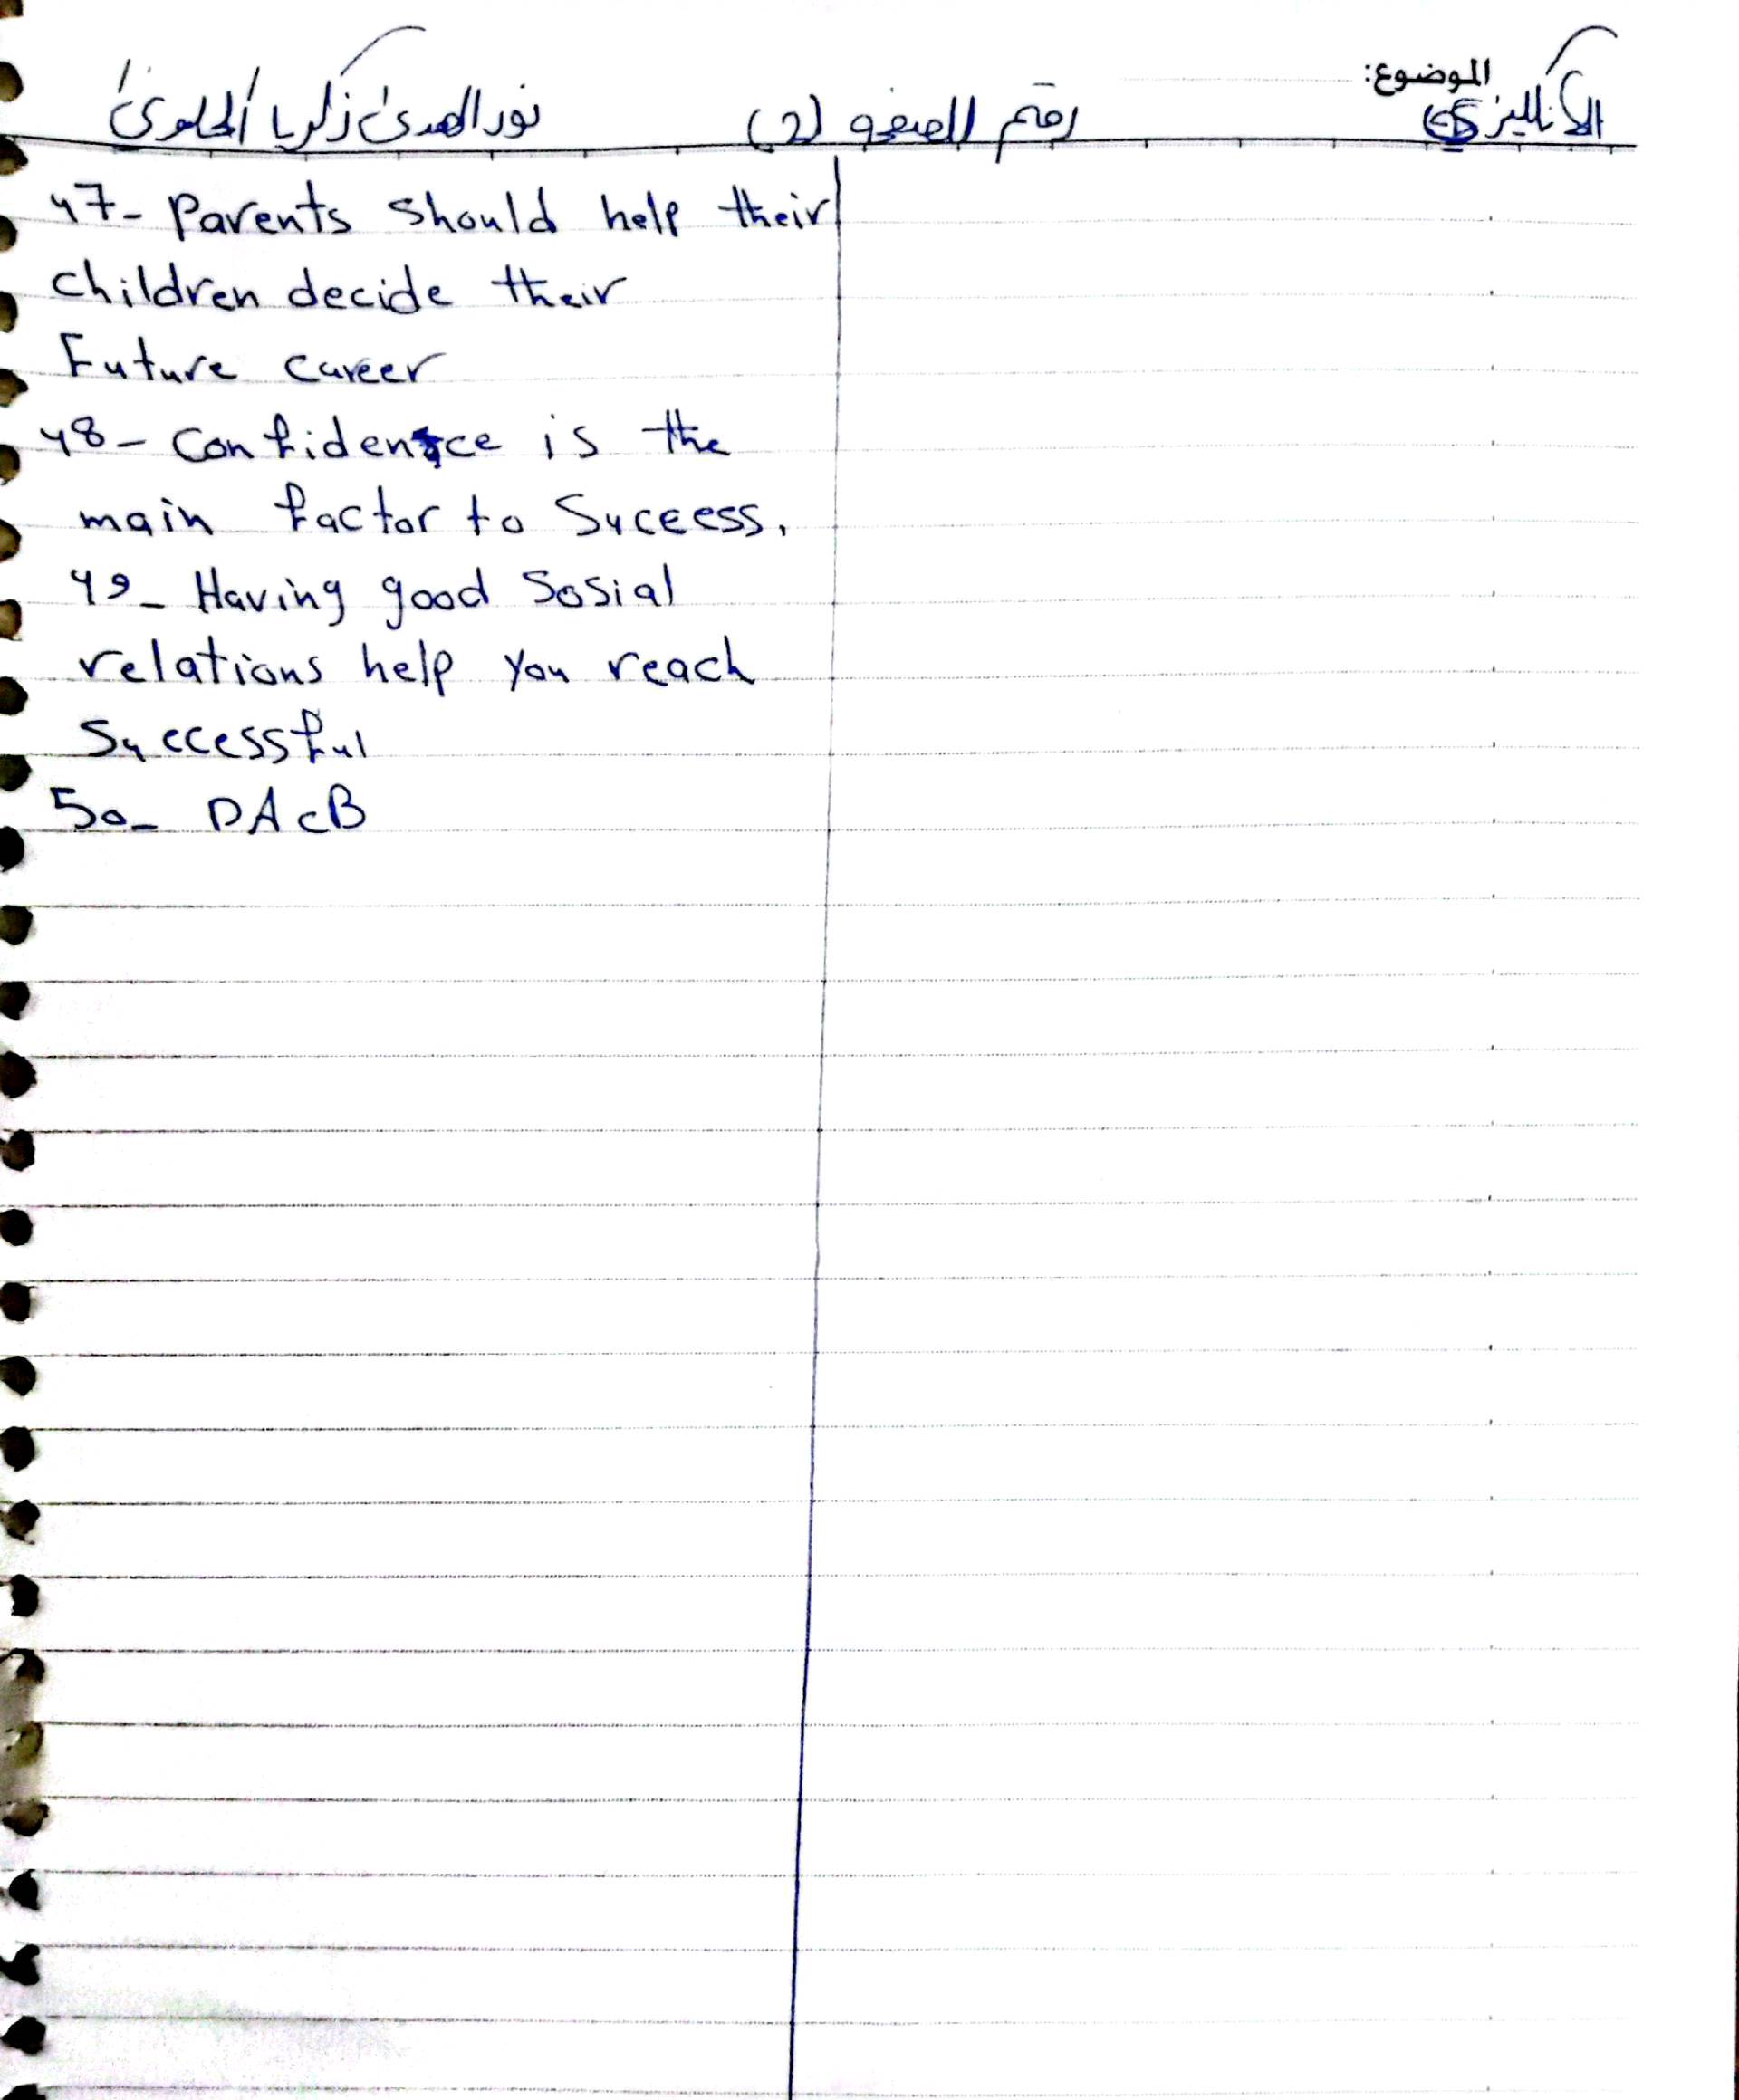 الموضوع:
الانكليزي
رقم الصفحه (2)
نور الهدى زكريا الحلوى
47- Parents should help their
children decide their
Future career
48- Confidence is the
main factor to Success.
49- Having good Sosial
relations help you reach
Successful
50- DAcB